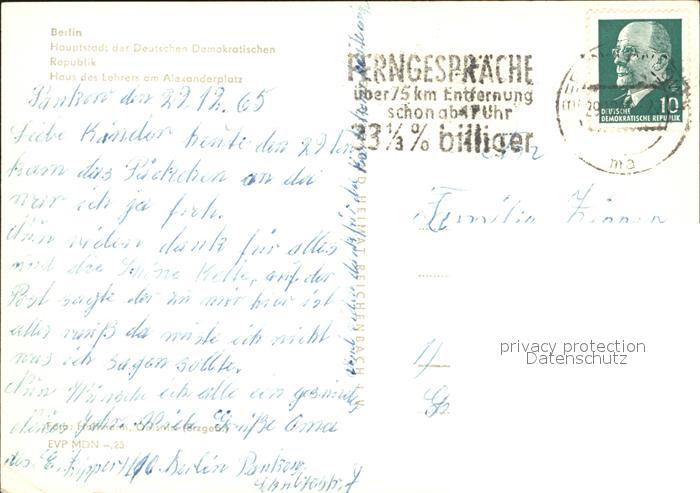 Berlin
Hauptstadt der Deutschen Demokratischen
Republik
Haus des Lehrers am Alexanderplatz
Pankow den 29.12.65
Liebe Kinder heute den 29 ten
kam das Päckchen an da
war ich ja froh.
Nun vielen dank für alles
und die Schöne Kette, auf der
Post sagte der zu mir hier ist
alles da wuste ich nicht
was ich sagen sollte.
Nun Wünsche ich alle ein gesundes
Neues Jahr. Viele Grüße Oma
Foto:
EVP MDN –,25
Berlin Pankow
HEIMAT REICHENBACH I. V.
FERNGESPRÄCHE
über 75 km Entfernung
schon ab 17 Uhr
33 1/3 % billiger
10
DEUTSCHE
DEMOKRATISCHE REPUBLIK
ma
Familie
privacy protection
Datenschutz